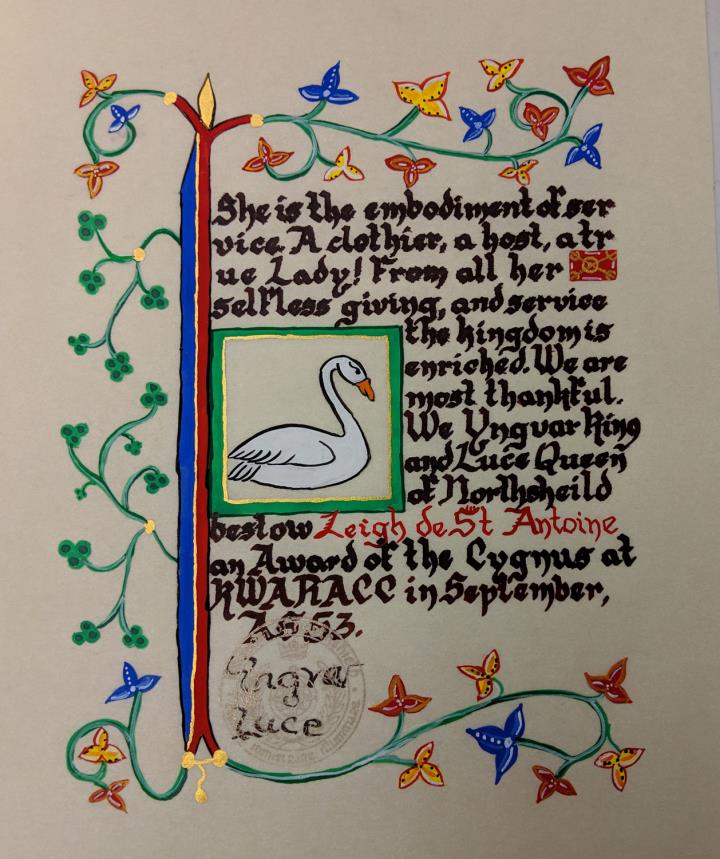 She is the embodiment of ser
vice. A clothier, a host, a tr
ue Lady! From all her
selfless giving, and service
the kingdom is
enriched. We are
most thankful.
We Yngvar King
and Luce Queen
of Northsheild
bestow Leigh de St Antoine
an Award of the Cygnus at
RWARACC in September,
A.S 53.
Yngvar
Luce